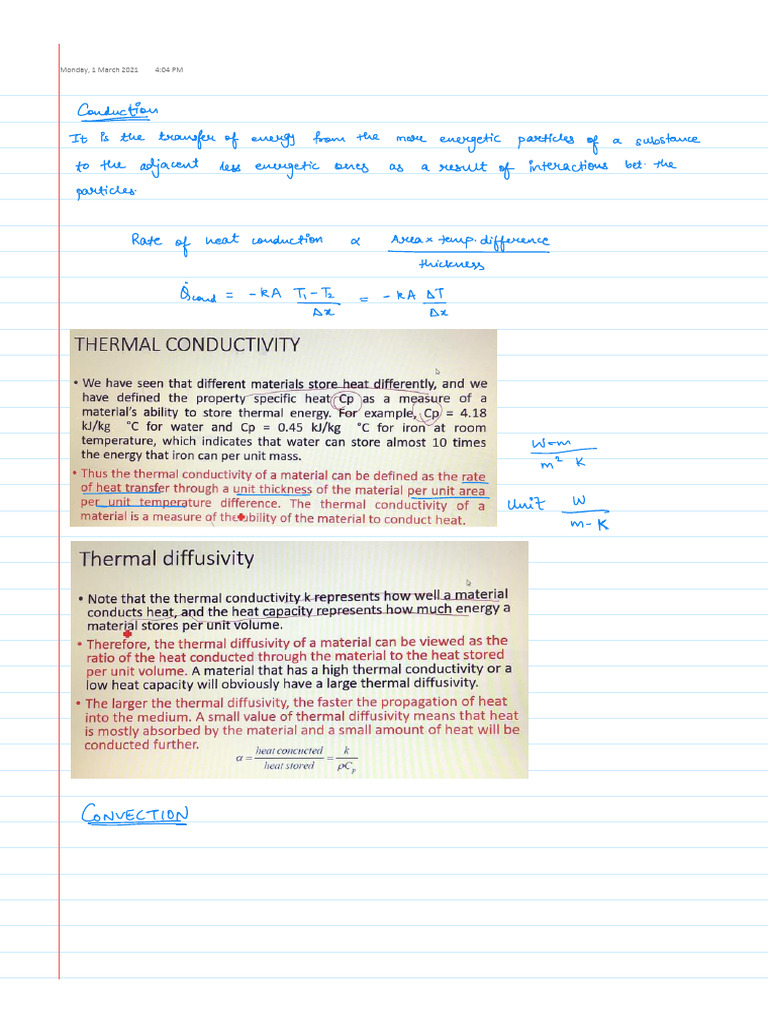 Monday, 1 March 2021 4:04 PM
Conduction
It is the transfer of energy from the more energetic particles of a substance
to the adjacent less energetic ones as a result of interactions bet. the
particles.
Rate of heat conduction ∝ Area × temp. difference / thickness
Q̇cond = -kA (T₁ - T₂) / Δx = -kA ΔT / Δx
THERMAL CONDUCTIVITY
• We have seen that different materials store heat differently, and we
have defined the property specific heat Cp as a measure of a
material's ability to store thermal energy. For example, Cp = 4.18
kJ/kg °C for water and Cp = 0.45 kJ/kg °C for iron at room
temperature, which indicates that water can store almost 10 times
the energy that iron can per unit mass.
• Thus the thermal conductivity of a material can be defined as the rate
of heat transfer through a unit thickness of the material per unit area
per unit temperature difference. The thermal conductivity of a
material is a measure of the ability of the material to conduct heat.
W-m / m² K
Unit W / m-K
Thermal diffusivity
• Note that the thermal conductivity k represents how well a material
conducts heat, and the heat capacity represents how much energy a
material stores per unit volume.
• Therefore, the thermal diffusivity of a material can be viewed as the
ratio of the heat conducted through the material to the heat stored
per unit volume. A material that has a high thermal conductivity or a
low heat capacity will obviously have a large thermal diffusivity.
• The larger the thermal diffusivity, the faster the propagation of heat
into the medium. A small value of thermal diffusivity means that heat
is mostly absorbed by the material and a small amount of heat will be
conducted further.
α = heat concucted / heat stored = k / ρCp
CONVECTION